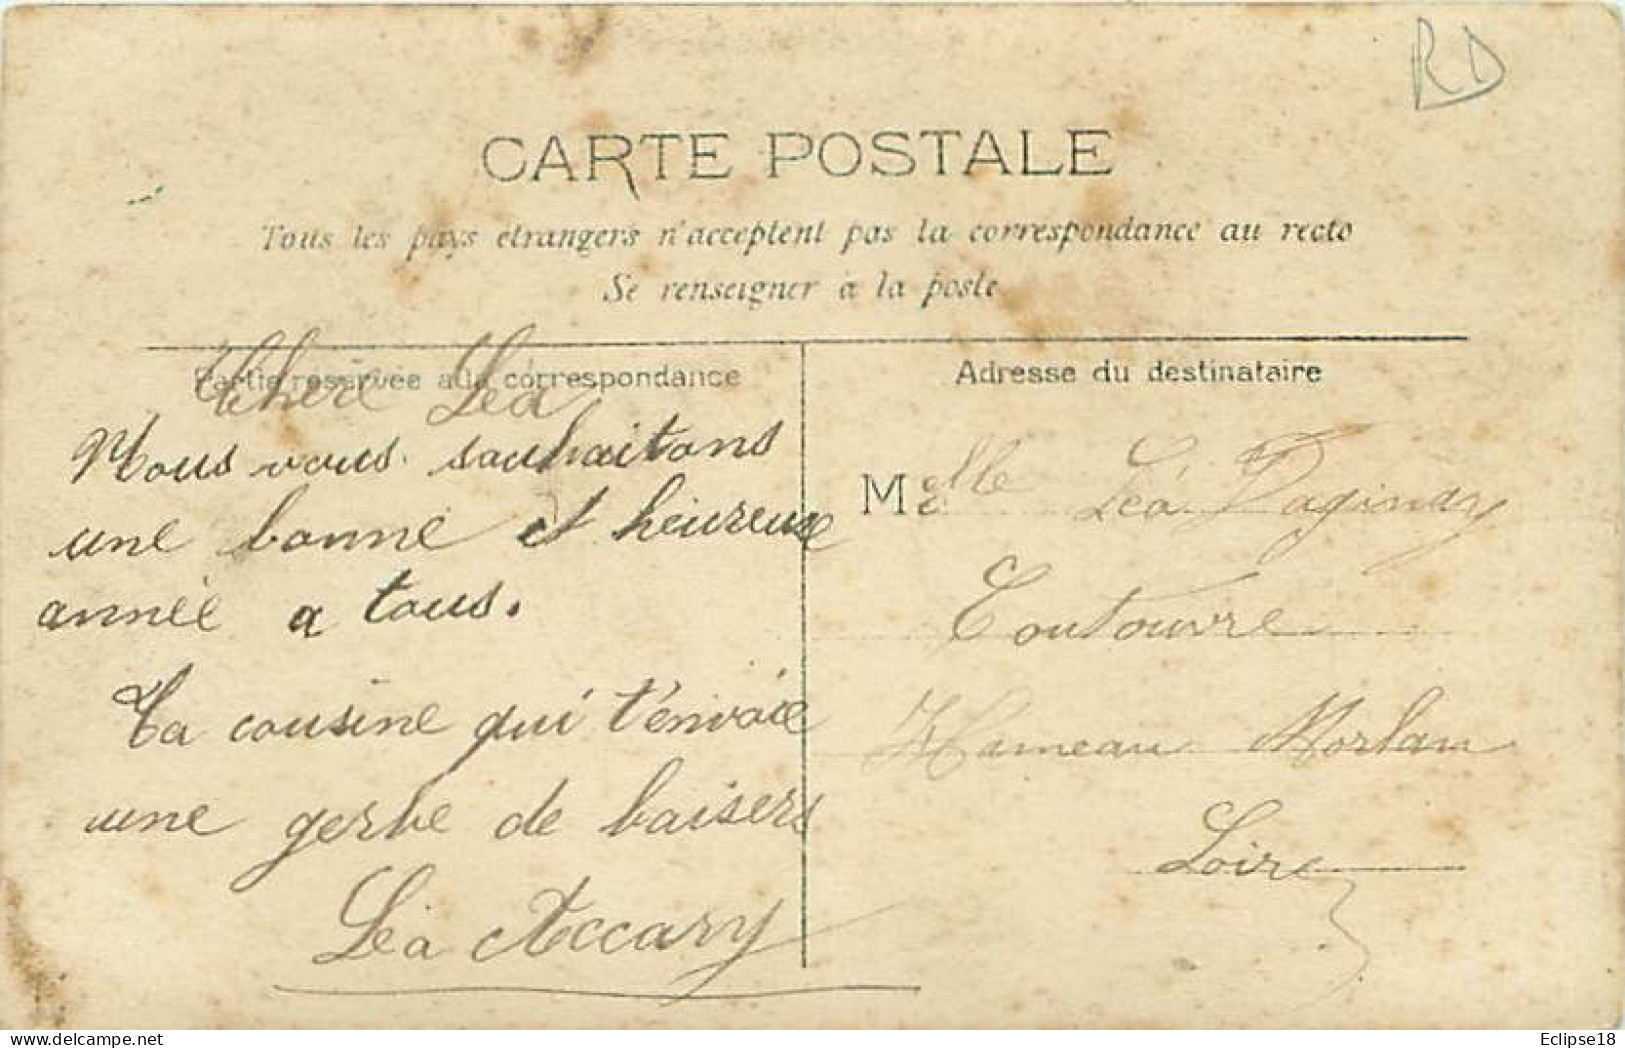 RD
CARTE POSTALE
Tous les pays etrangers n'acceptent pas la correspondance au recto
Se renseigner à la poste
Partie reservée a la correspondance
Adresse du destinataire
Chère Léa
Nous vous souhaitons
une bonne et heureuse
année a tous.
Ta cousine qui t'envoie
une gerbe de baisers
Léa Accary
Melle Léa Daginay
Coutouvre
Hameau Morlan
Loire
Eclipse18